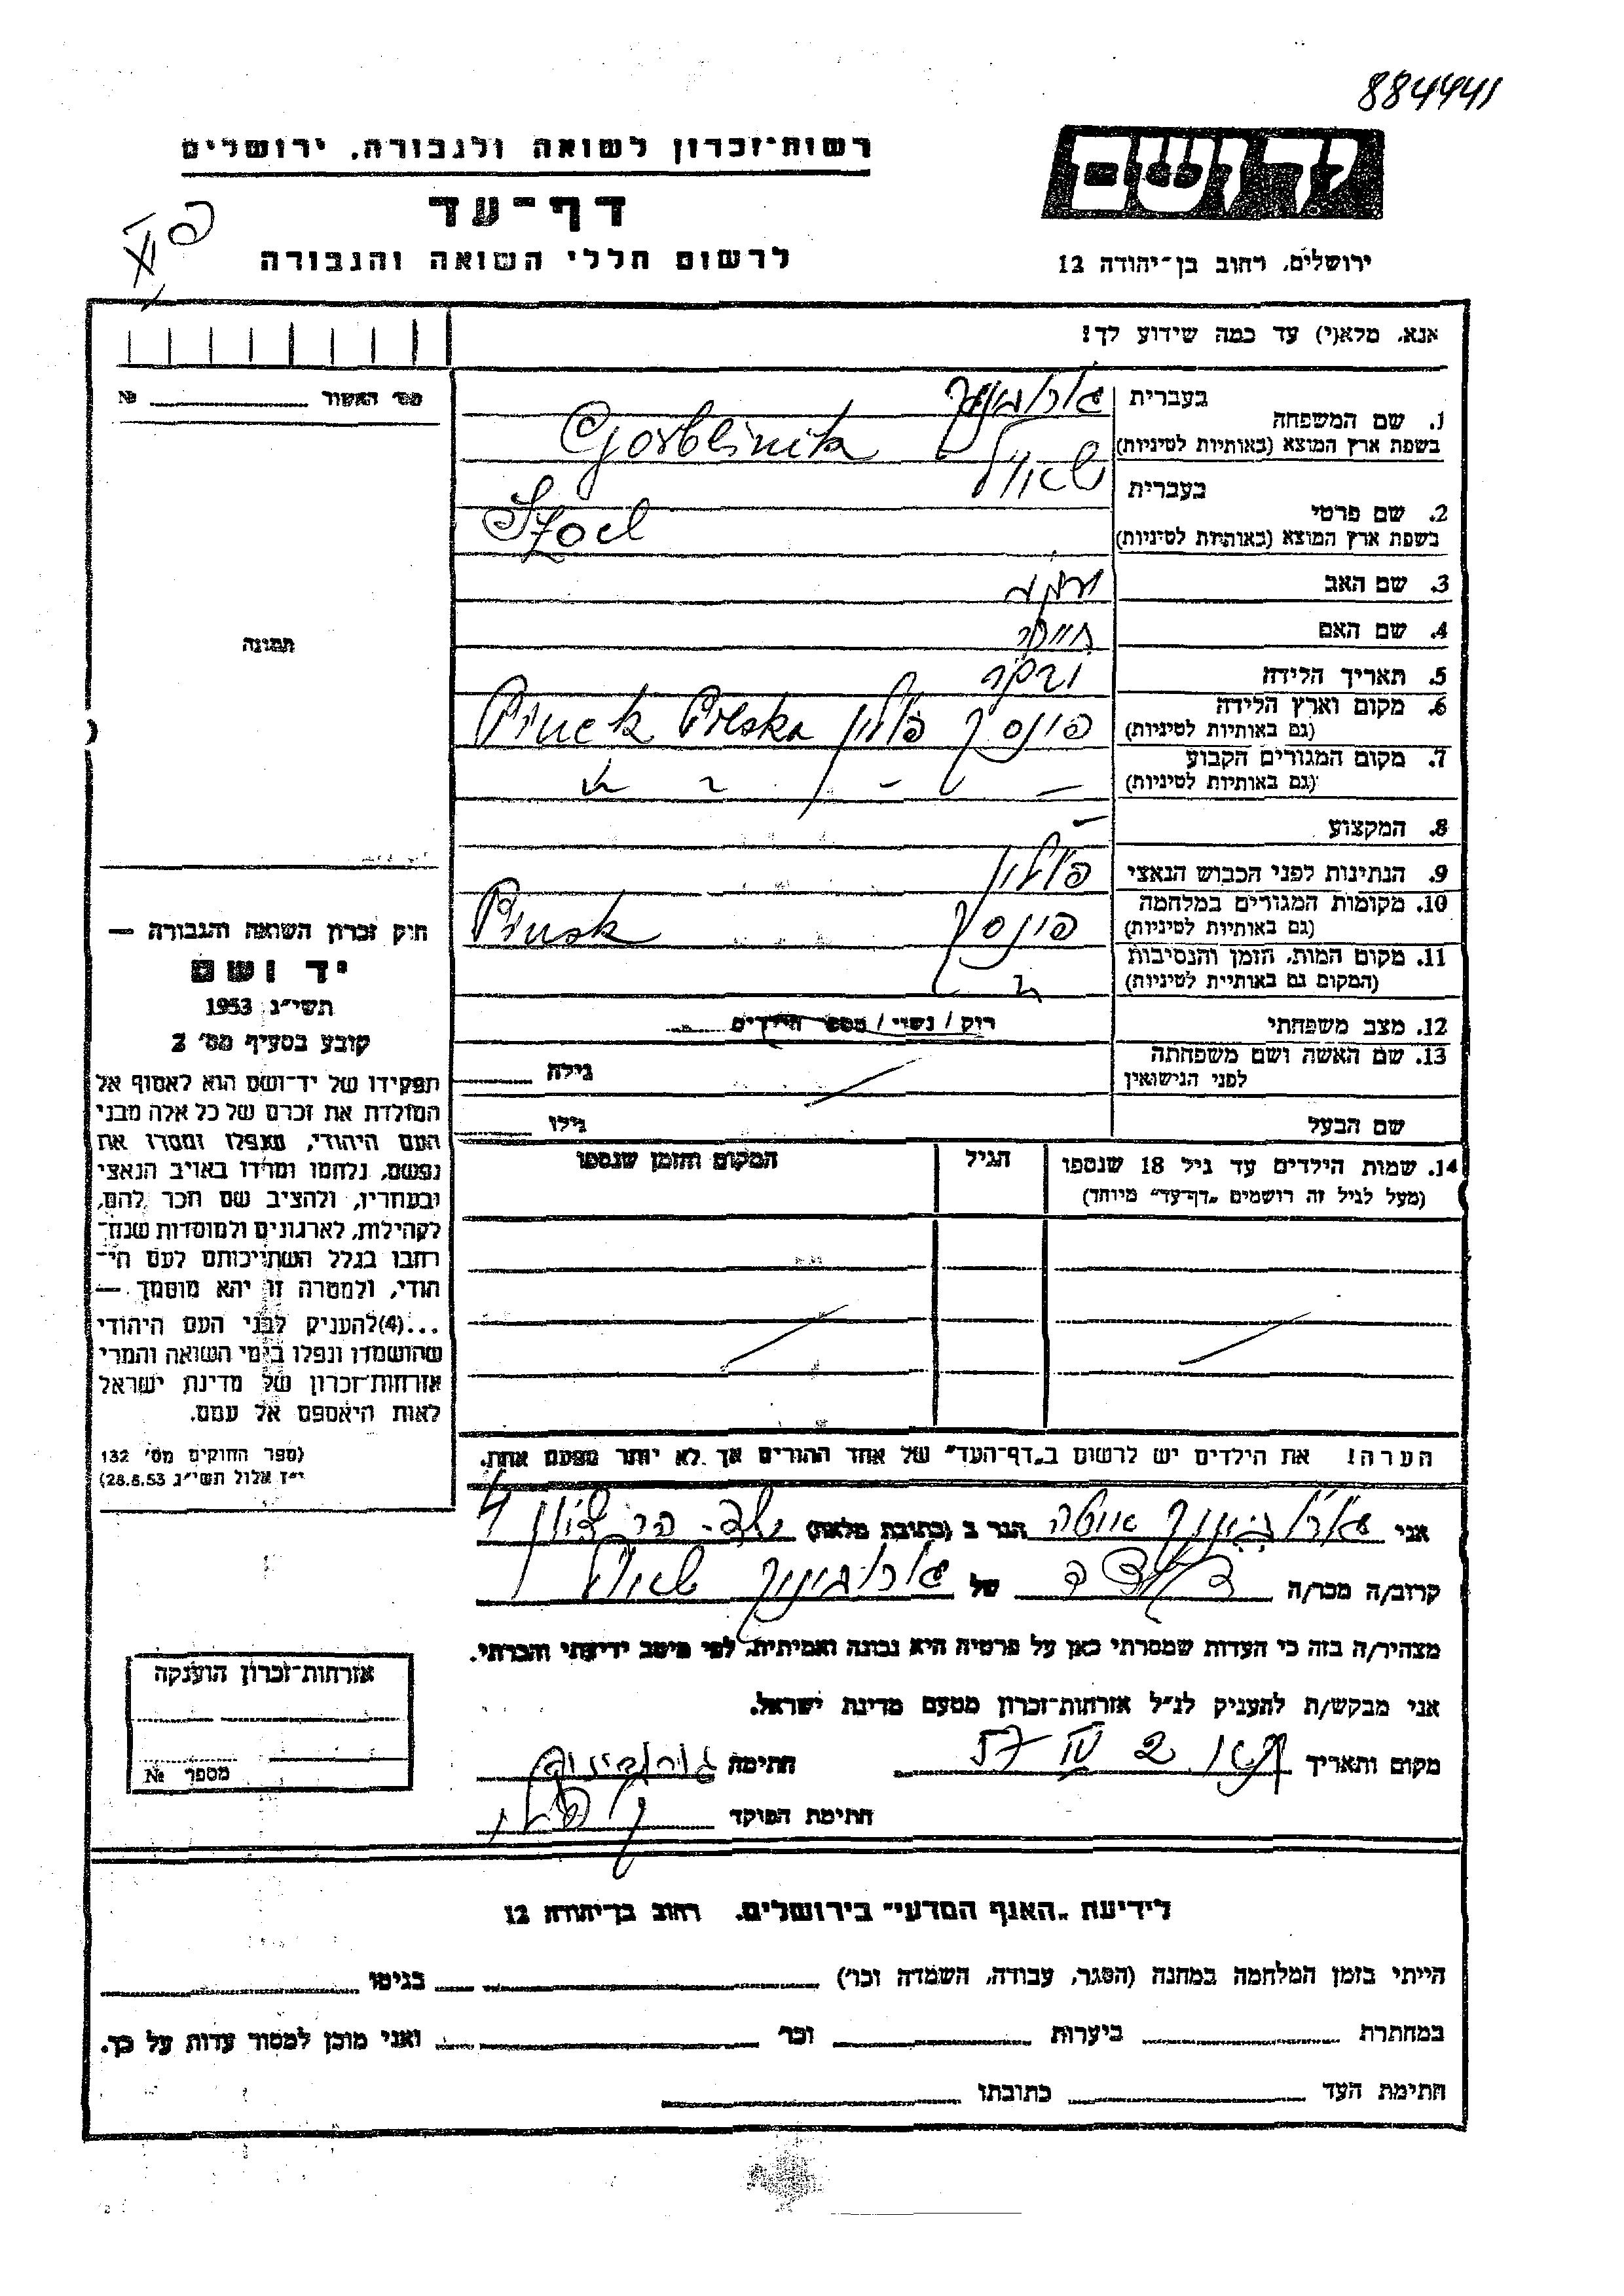 884441
יד ושם
רשות־זכרון לשואה ולגבורה, ירושלים
דף־עד
לרשום חללי השואה והגבורה
ירושלים, רחוב בן־יהודה 12
אנא, מלא(י) עד כמה שידוע לך!
מס' האשור № 
1. שם המשפחה
בעברית
בשפת ארץ המוצא (באותיות לטיניות) Gorblinik
2. שם פרטי
בעברית שאול
בשפת ארץ המוצא (באותיות לטיניות) Szoel
3. שם האב
4. שם האם
5. תאריך הלידה
6. מקום וארץ הלידה פינסק פולין
(גם באותיות לטיניות) Polska
7. מקום המגורים הקבוע
(גם באותיות לטיניות)
8. המקצוע —
9. הנתינות לפני הכבוש הנאצי פולין
10. מקומות המגורים במלחמה פינסק
(גם באותיות לטיניות)
11. מקום המות, הזמן והנסיבות
(המקום גם באותיות לטיניות)
12. מצב משפחתי רוק / נשוי / מספר הילדים
13. שם האשה ושם משפחתה
לפני הנישואין
גילה
שם הבעל גילו
14. שמות הילדים עד גיל 18 שנספו
(מעל לגיל זה רושמים „דף־עד" מיוחד)
הגיל
המקום והזמן שנספו
הערה! את הילדים יש לרשום ב„דף־העד" של אחד ההורים אך לא יותר מפעם אחת.
תמונה
חוק זכרון השואה והגבורה —
יד ושם
תשי"ג 1953
קובע בסעיף מס' 2
תפקידו של יד־ושם הוא לאסוף אל
המולדת את זכרם של כל אלה מבני
העם היהודי, שנפלו ומסרו את
נפשם, נלחמו ומרדו באויב הנאצי
ובעוזריו, ולהציב שם וזכר להם,
לקהילות, לארגונים ולמוסדות שנח־
רבו בגלל השתייכותם לעם הי־
הודי, ולמטרה זו יהא מוסמך —
...(4)להעניק לבני העם היהודי
שהושמדו ונפלו בימי השואה והמרי
אזרחות־זכרון של מדינת ישראל
לאות היאספם אל עמם.
(ספר החוקים מס' 132
י"ז אלול תשי"ג 28.8.53)
אני הגר ב (כתובת מלאה)
קרוב/ה מכר/ה של שאול
מצהיר/ה בזה כי העדות שמסרתי כאן על פרטיה היא נכונה ואמיתית, לפי מיטב ידיעתי והכרתי.
אני מבקש/ת להעניק לנ"ל אזרחות־זכרון מטעם מדינת ישראל.
מקום ותאריך 2 IV 57 חתימה
חתימת הפוקד
אזרחות־זכרון הוענקה
מספר №
לידיעת „האגף המדעי" בירושלים, רחוב בן־יהודה 12
הייתי בזמן המלחמה במחנה (הסגר, עבודה, השמדה וכו') בגיטו
במחתרת ביערות וכו' ואני מוכן למסור עדות על כך.
חתימת העד כתובתו